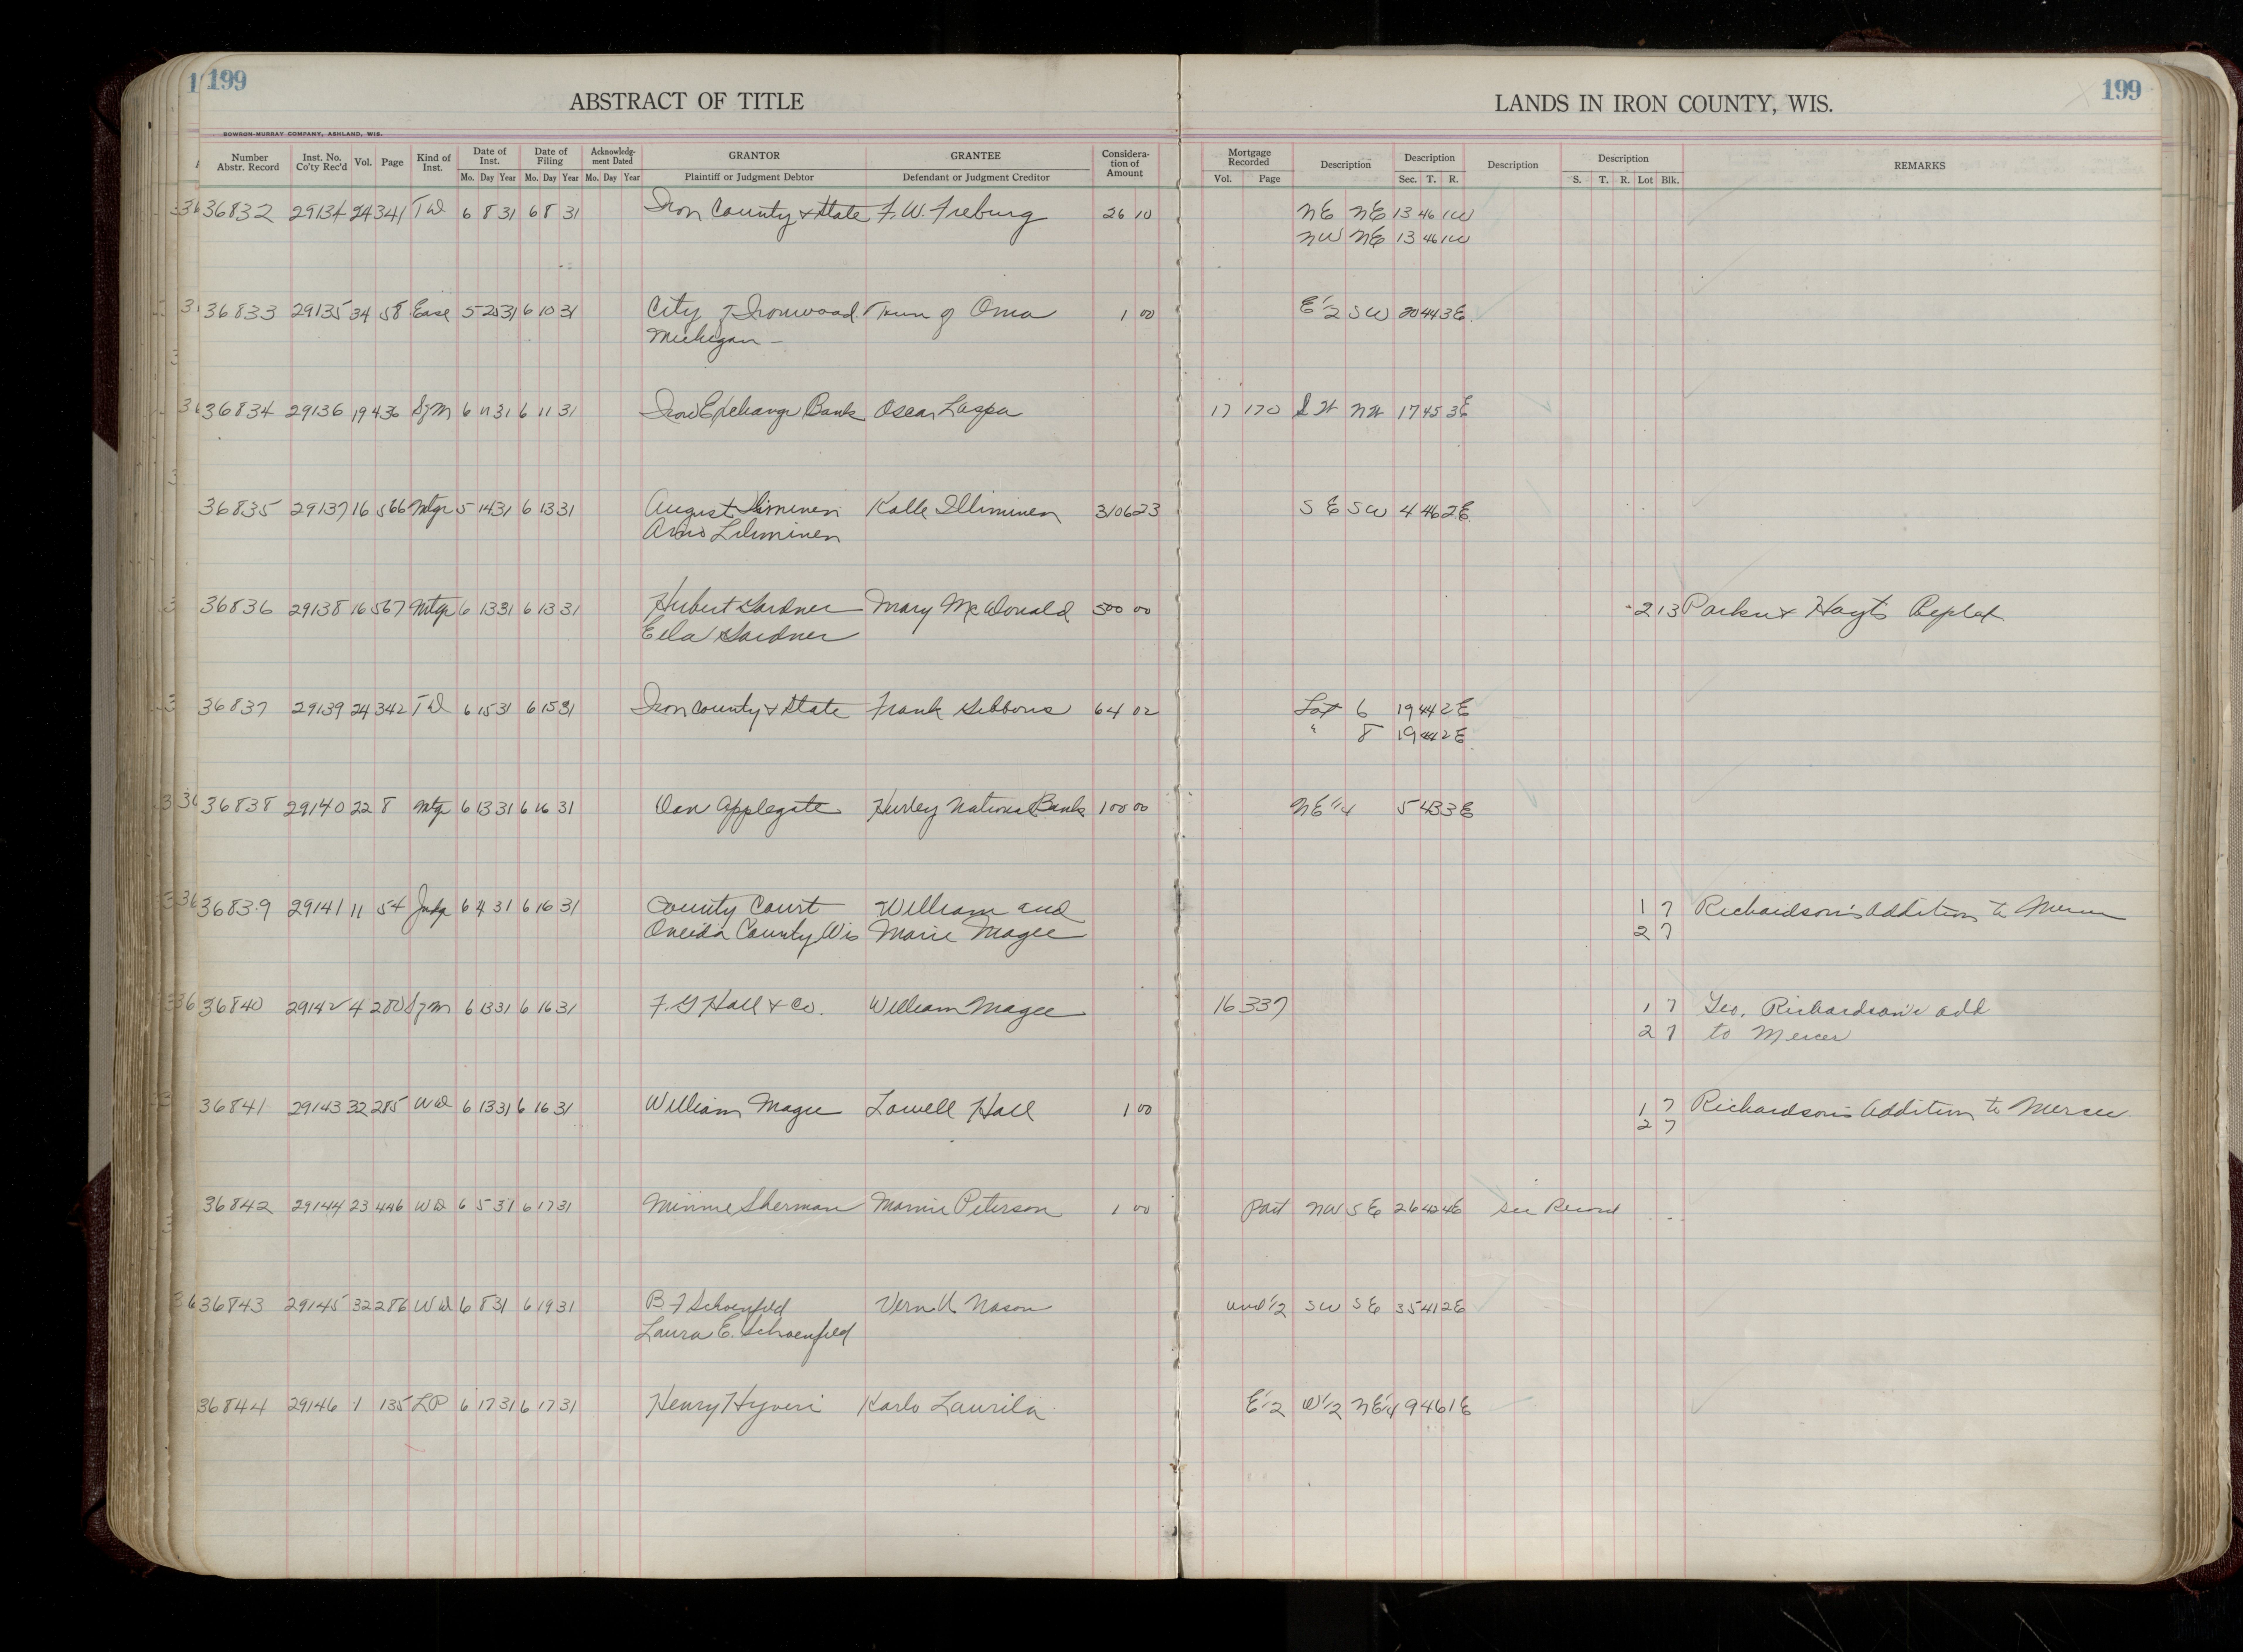 199
ABSTRACT OF TITLE
LANDS IN IRON COUNTY, WIS.
199
BOWRON-MURRAY COMPANY, ASHLAND, WIS.
Number Abstr. Record | Inst. No. Co'ty Rec'd | Vol. | Page | Kind of Inst. | Date of Inst. Mo. Day Year | Date of Filing Mo. Day Year | Acknowledg-ment Dated Mo. Day Year | GRANTOR Plaintiff or Judgment Debtor | GRANTEE Defendant or Judgment Creditor | Considera-tion of Amount | Mortgage Recorded Vol. Page | Description | Description Sec. T. R. | Description | Description S. T. R. Lot Blk. | REMARKS
36832 29134 24 341 TD 6 8 31 6 8 31 Iron County & State F. W. Freburg 26 10 NE NE 13 46 1W
NW NE 13 46 1W
36833 29135 34 58 Ease 5 25 31 6 10 31 City of Ironwood Town of Oma 1 00 E1/2 SW 20 44 3E
Michigan
36834 29136 19 436 Sgm 6 11 31 6 11 31 Iron Exchange Bank Oscar Laspa 17 170 SW NW 17 45 3E
36835 29137 16 566 Mtge 5 14 31 6 13 31 August Kalle 3106 23 SE SW 4 46 2E
36836 29138 16 567 Mtge 6 13 31 6 13 31 Hubert Gardner Mary McDonald 500 00 2 13 Parker & Hoyts Replat
Gardner
36837 29139 24 342 TD 6 15 31 6 15 31 Iron County & State Frank Gibbons 64 02 Lot 6 19 44 2E
" 8 19 44 2E
36838 29140 22 8 Mtge 6 13 31 6 16 31 Dan Applegate Hurley National Bank 100 00 NE1/4 5 43 3E
36839 29141 11 54 Judg 6 4 31 6 16 31 County Court William and 1 7 Richardson's Addition to Mercer
Oneida County Wis Marie Magee 2 7
36840 29142 4 280 Sgm 6 13 31 6 16 31 F. G Hall & Co. William Magee 16 337 1 7 Geo. Richardson's add
2 7 to Mercer
36841 29143 32 285 WD 6 13 31 6 16 31 William Magee Lowell Hall 1 00 1 7 Richardson's Addition to Mercer
2 7
36842 29144 23 446 WD 6 5 31 6 17 31 Minnie Sherman Mamie Peterson 1 00 part NW SE 26 42 4E See Record
36843 29145 32 286 WD 6 8 31 6 19 31 B F Schoenfeld Vern Nason und 1/2 SW SE 35 41 2E
Laura E. Schoenfeld
36844 29146 1 135 LP 6 17 31 6 17 31 Henry Hyveri Karlo Laurila E1/2 W1/2 NE1/4 9 46 1E